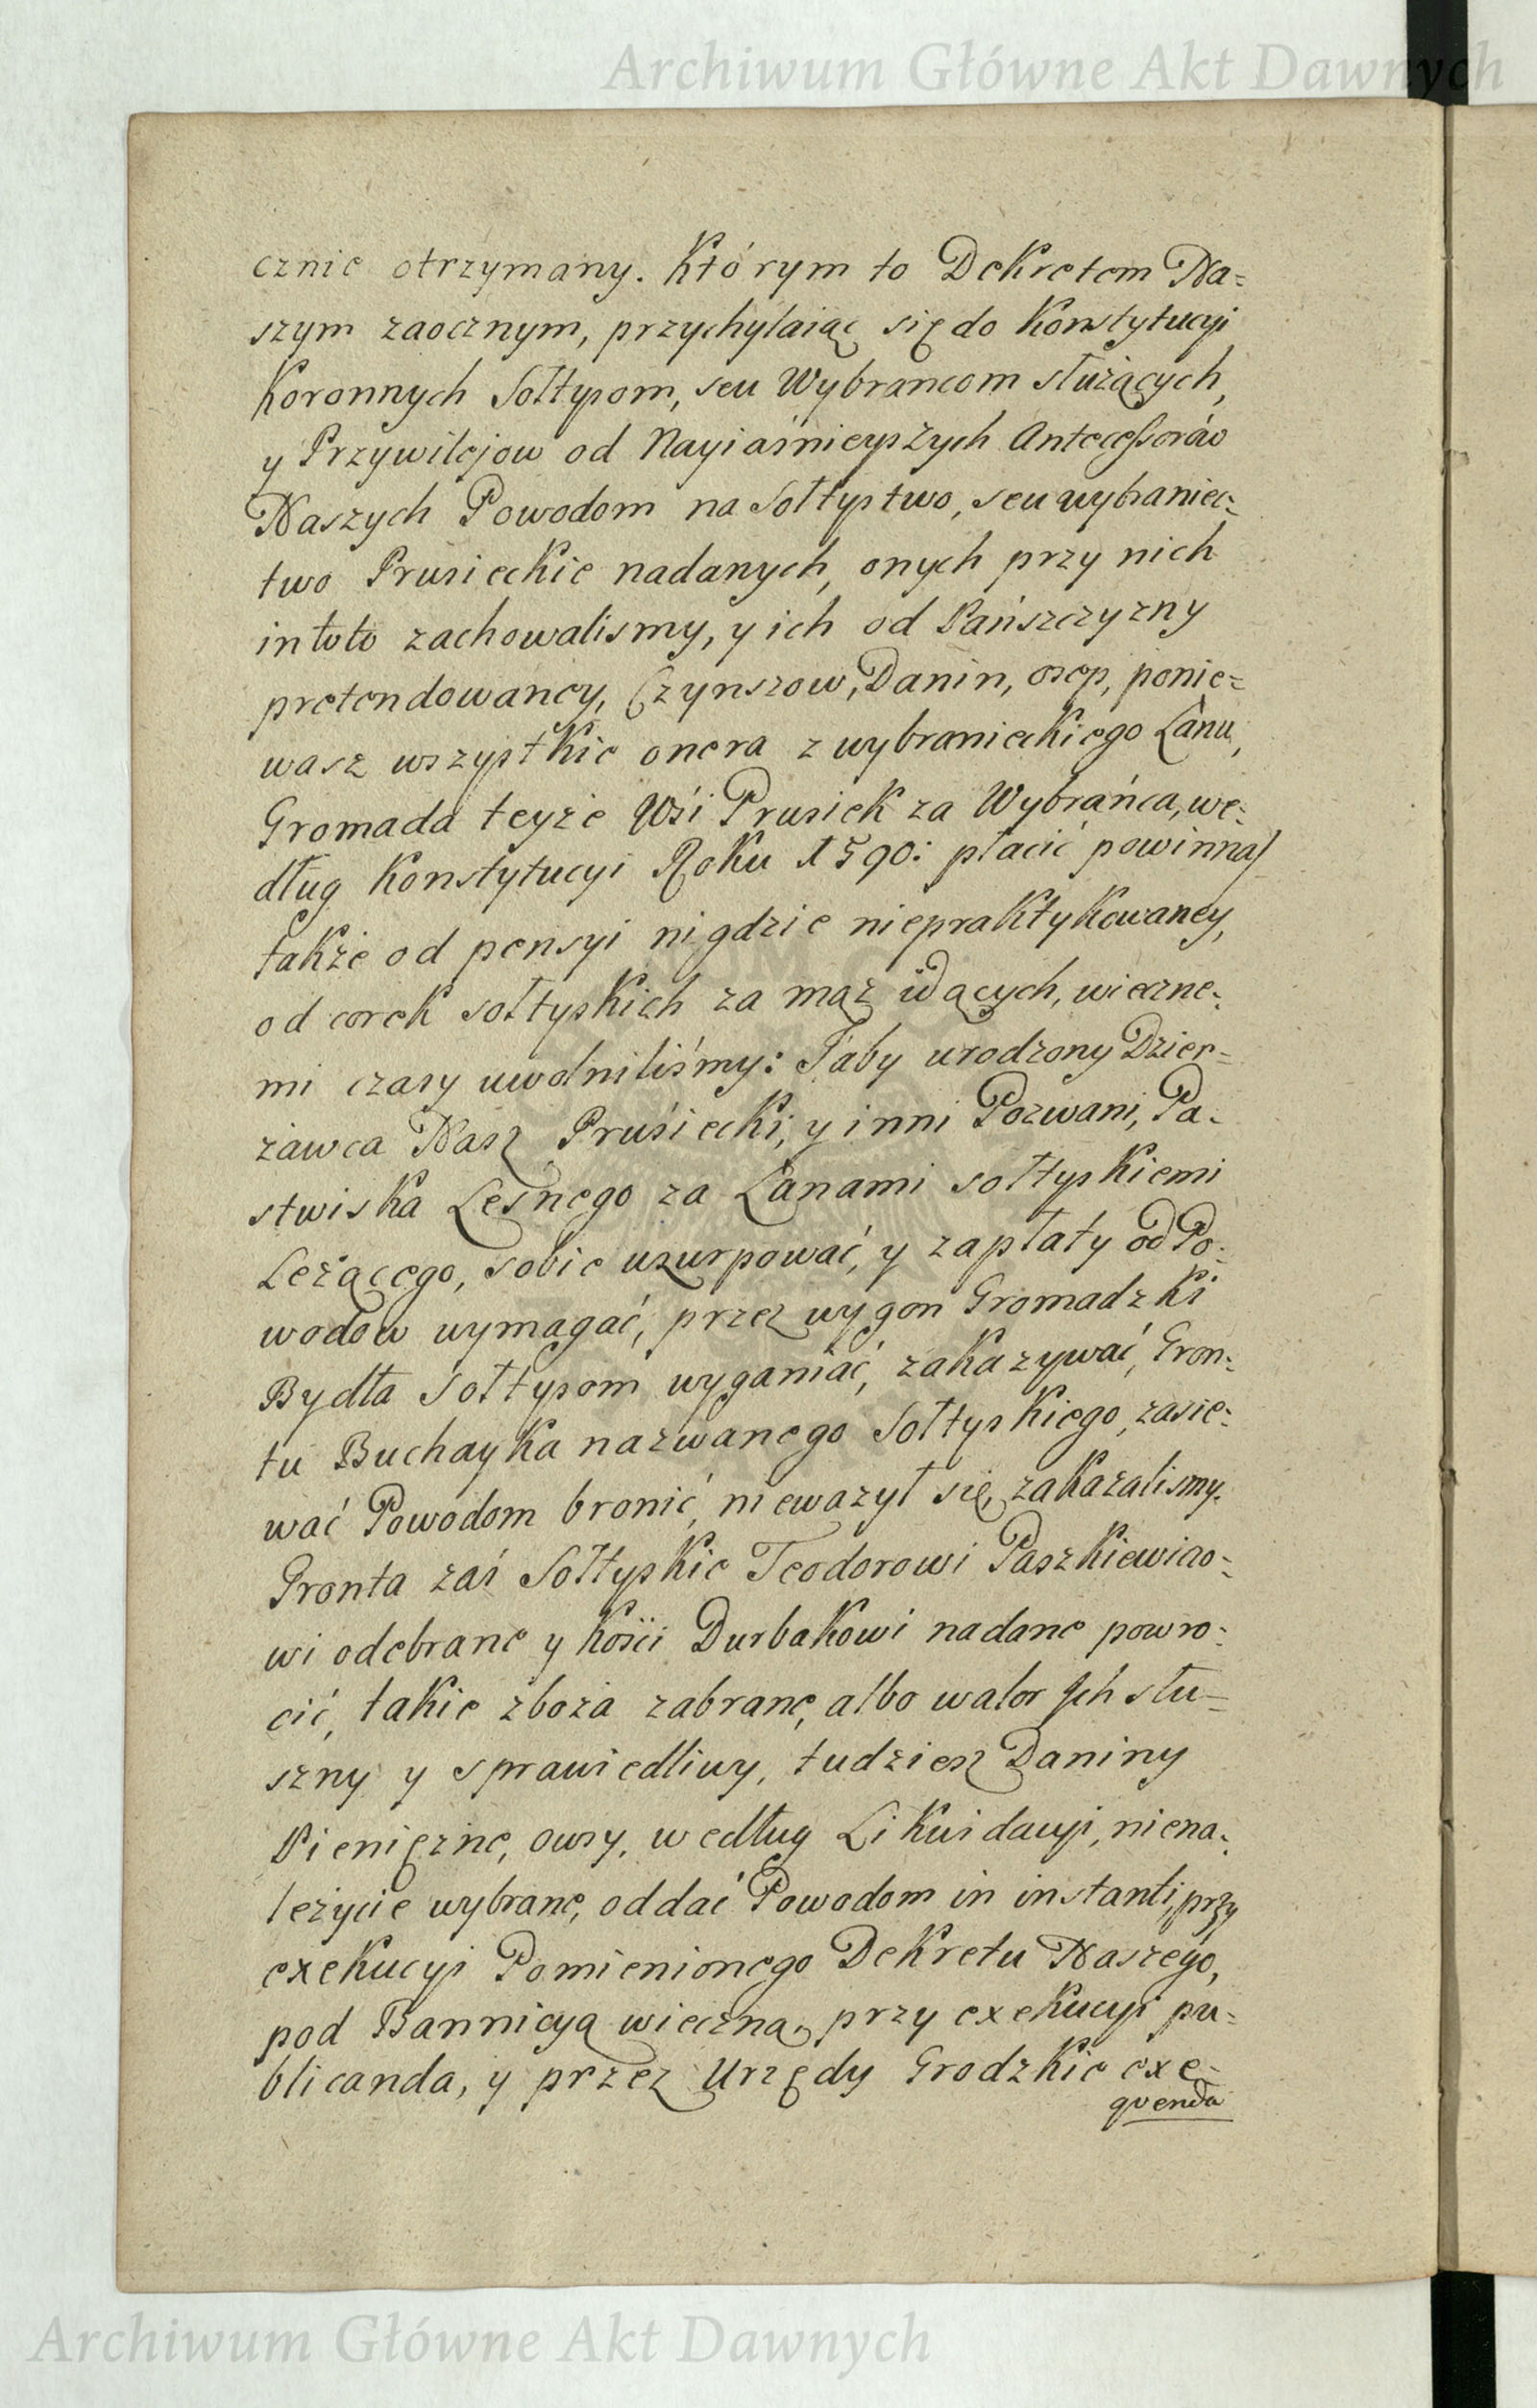 Archiwum Główne Akt Dawnych
cznie otrzymany. Którym to Dekretem Na=
szym zaocznym, przychylaiąc się do Konstytucyi
Koronnych Sołtysom, seu Wybrancom służących,
y Przywilejow od Nayiaśnieyszych Antecessorów
Naszych Powodom na Sołtystwo, seu wybraniec=
two Prusieckie nadanych, onych przy nich
in toto zachowalismy, y ich od Pańszczyzny
pretendowaney, Czynszow, Danin, osep, ponie=
wasz wszystkie onera z wybranieckiego Łanu,
Gromada teyże Wśi Prusiek za Wybrańca, we=
dług Konstytucyi Roku 1590: płacić powinna)
także od pensyi nigdzie niepraktykowaney,
od corek sołtyskich za mąż idących, wieczne=
mi czasy uwolniliśmy: Jaby urodzony Dzier=
żawca Nasz Pruśiecki, y inni Pozwani, Pa=
stwiska Leśnego za Łanami sołtyskiemi
Leżącego, sobie uzurpować, y zapłaty od Po=
wodow wymagać, przez wygon Gromadzki
Bydła Sołtysom wyganiać, zakazywać, Gron=
tu Buchayka nazwanego Sołtyskiego, zasie=
wać Powodom bronić, nieważył się, zakazalismy.
Gronta zaś Sołtyskie Teodorowi Paszkiewiczo=
wi odebrane y Kośći Durbakowi nadane powro=
cić, takie zboża zabrane, albo walor Jch słu=
szny y sprawiedliwy, tudziesz Daniny
Pieniężne, owsy, według Likwidacyi, niena=
leżycie wybrane, oddać Powodom in instanti, przy
exekucyi Pomienionego Dekretu Naszego,
pod Bannicyą wieczną, przy exekucyi pu=
blicanda, y przez Urzędy Grodzkie exe=
quenda
Archiwum Główne Akt Dawnych